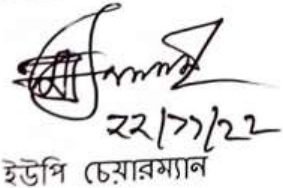 ২২/১১/২২
ইউপি চেয়ারম্যান